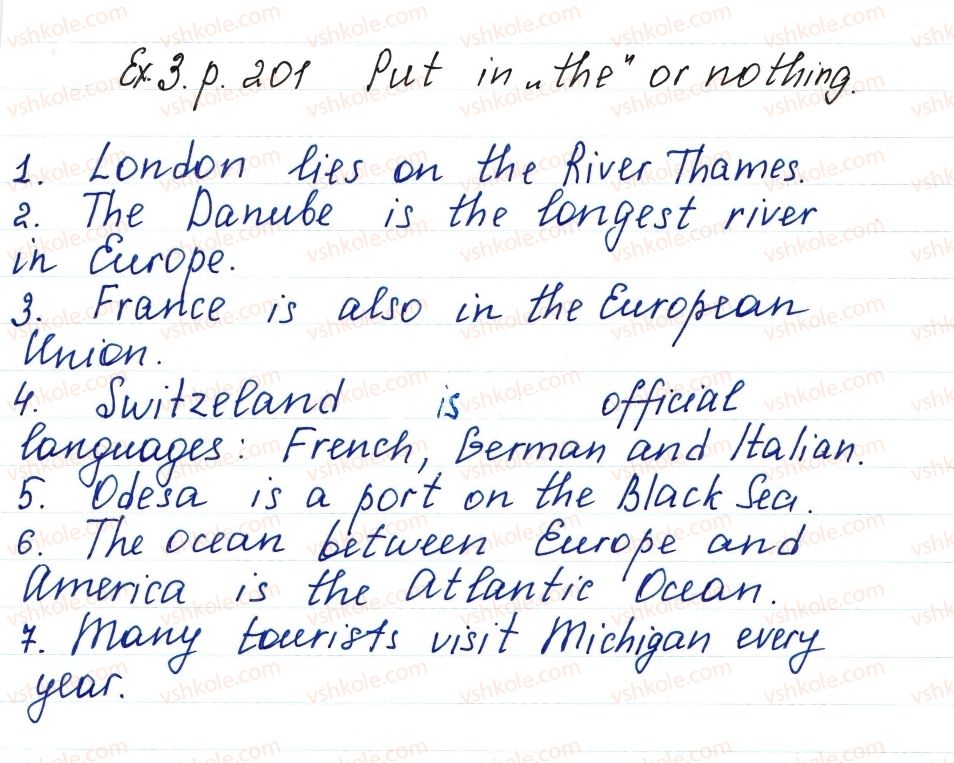 Ex. 3. p. 201 Put in „the" or nothing.
1. London lies on the River Thames.
2. The Danube is the longest river
in Europe.
3. France is also in the European
Union.
4. Switzeland is official
languages: French, German and Italian.
5. Odesa is a port on the Black Sea.
6. The ocean between Europe and
America is the Atlantic Ocean.
7. Many tourists visit Michigan every
year.